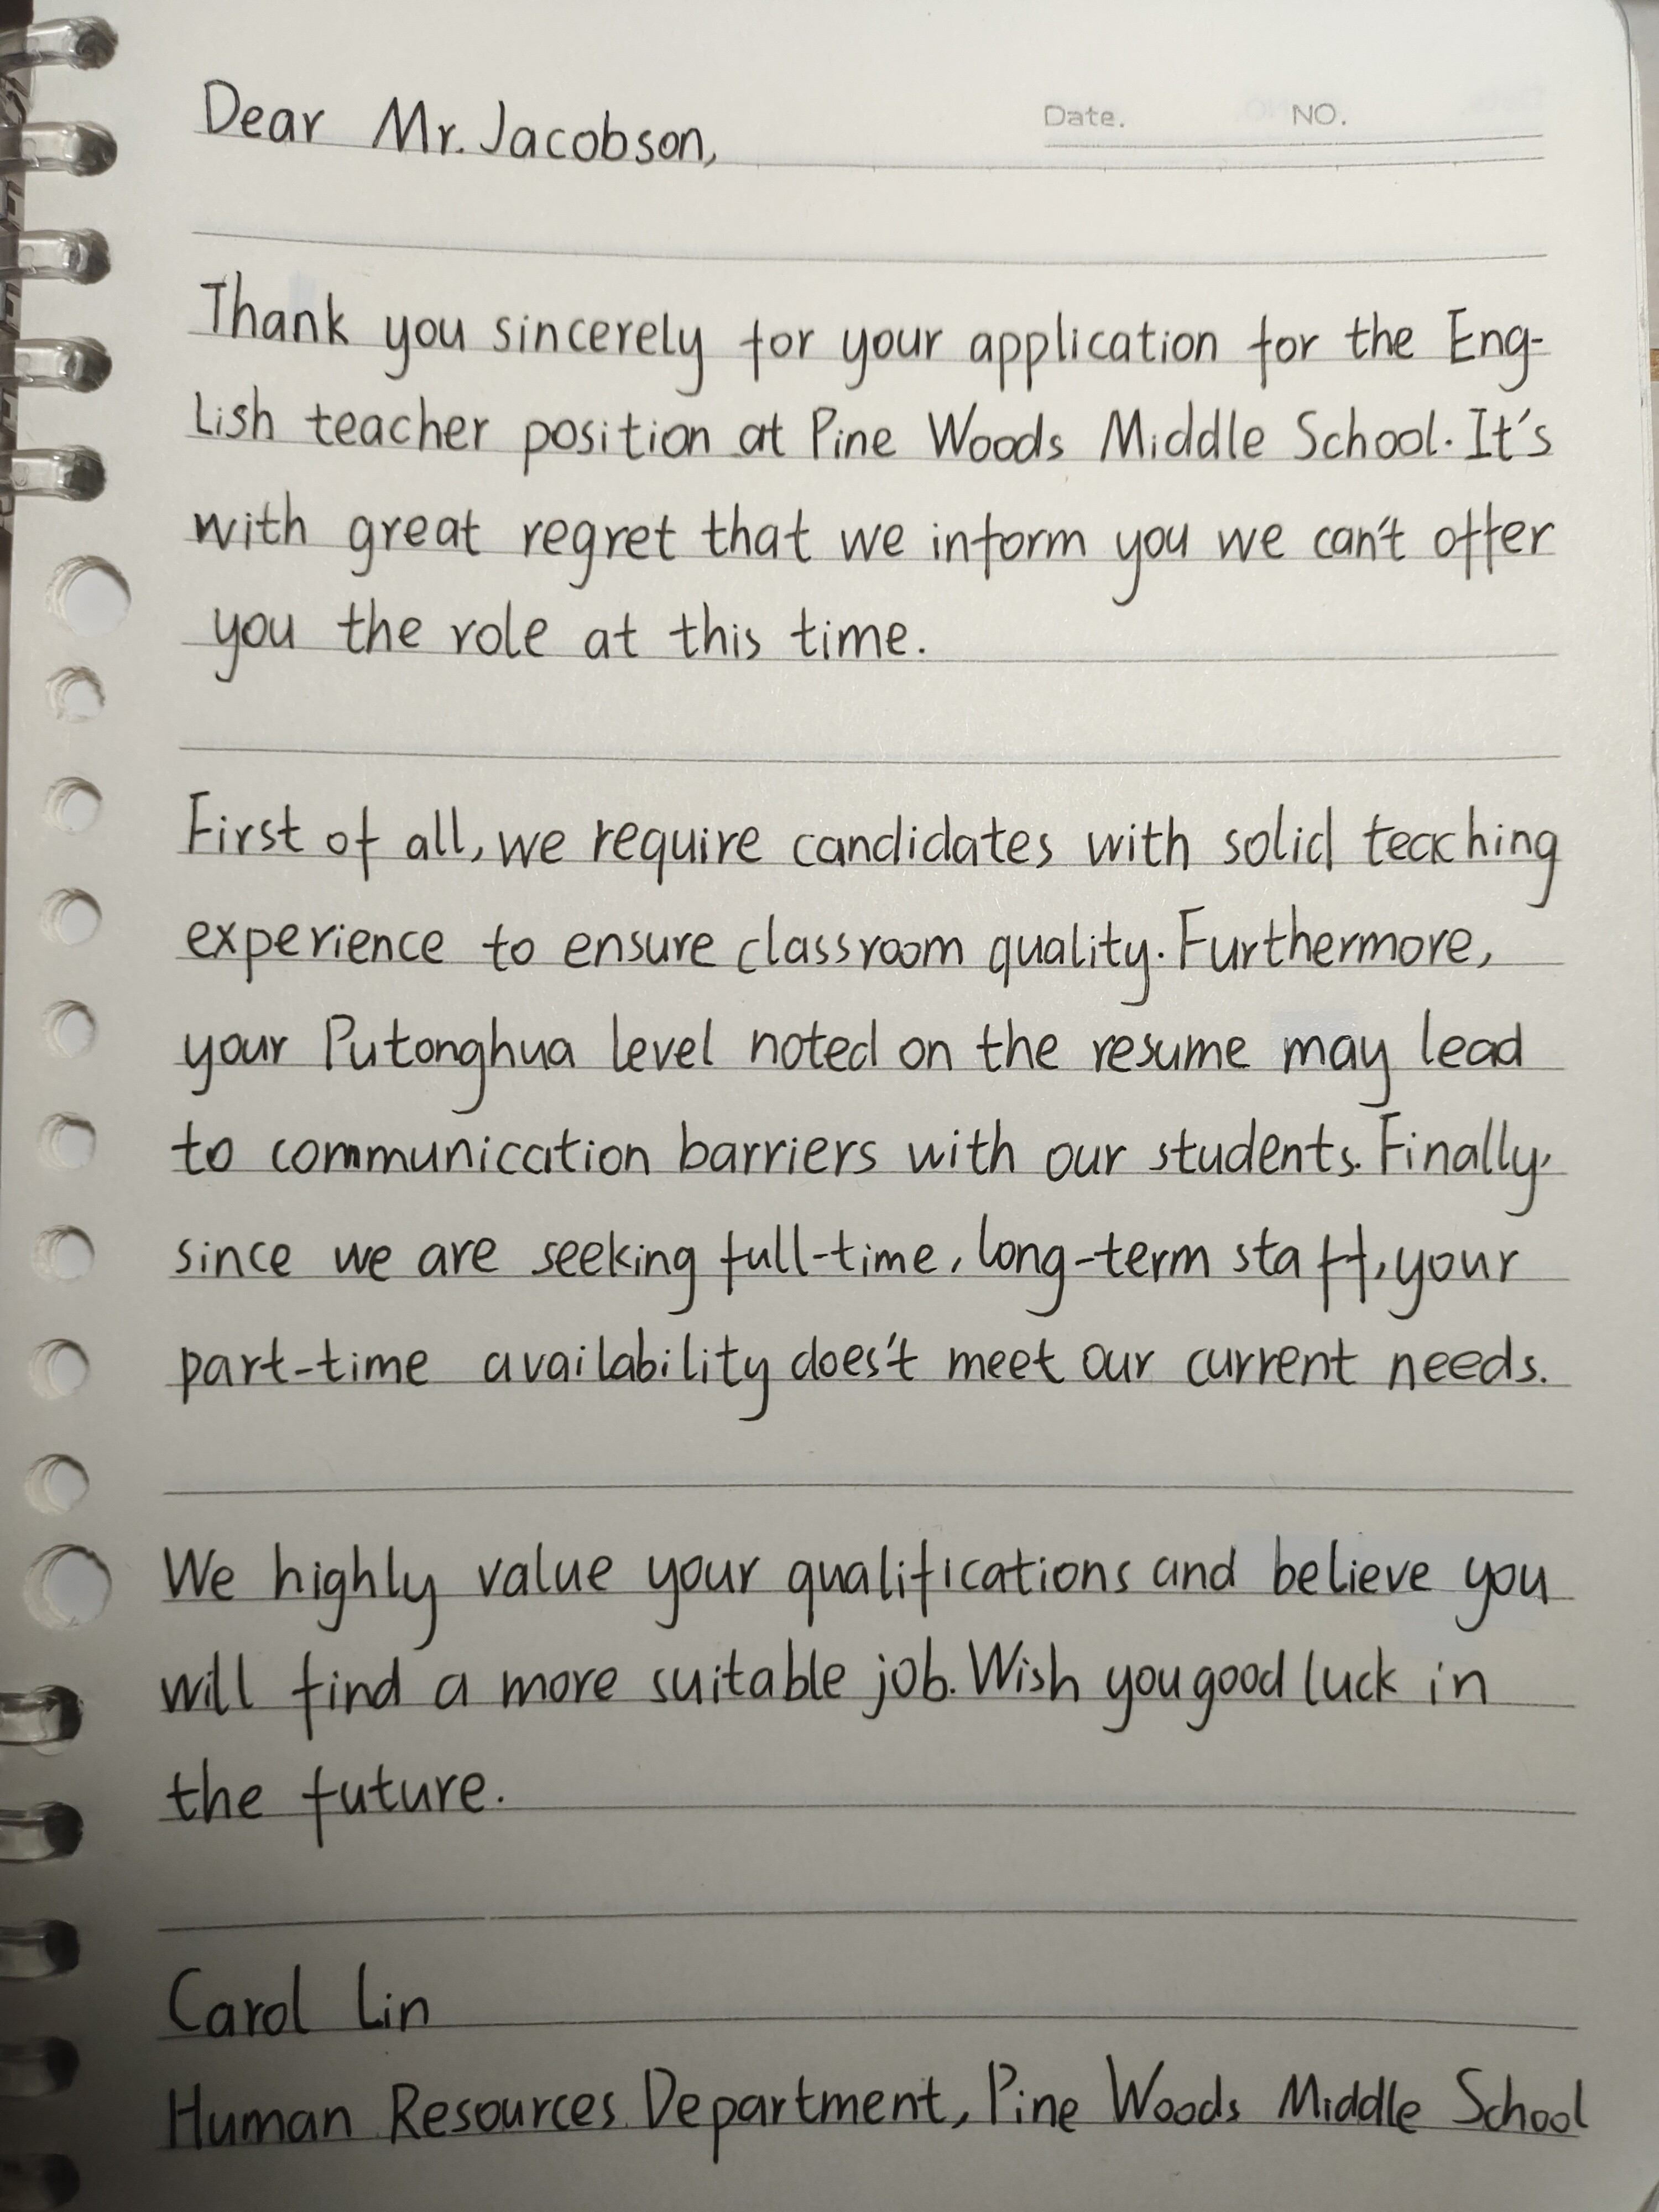 Dear Mr. Jacobson,
Date. NO.
Thank you sincerely for your application for the Eng-
lish teacher position at Pine Woods Middle School. It's
with great regret that we inform you we can't offer
you the role at this time.
First of all, we require candidates with solid teaching
experience to ensure classroom quality. Furthermore,
your Putonghua level noted on the resume may lead
to communication barriers with our students. Finally,
since we are seeking full-time, long-term staff, your
part-time availability does't meet our current needs.
We highly value your qualifications and believe you
will find a more suitable job. Wish you good luck in
the future.
Carol Lin
Human Resources Department, Pine Woods Middle School